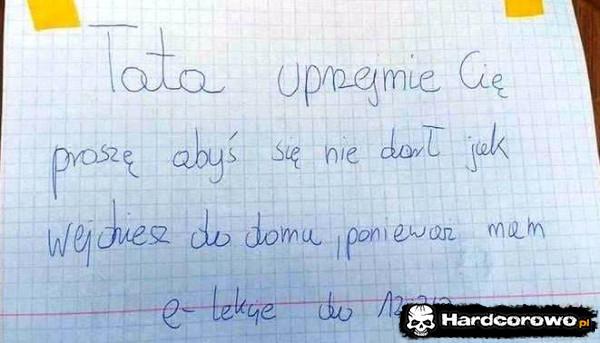 Tata uprzejmie Cię
proszę abyś się nie darł jak
wejdziesz do domu, ponieważ mam
e-lekcje do
Hardcorowo.pl